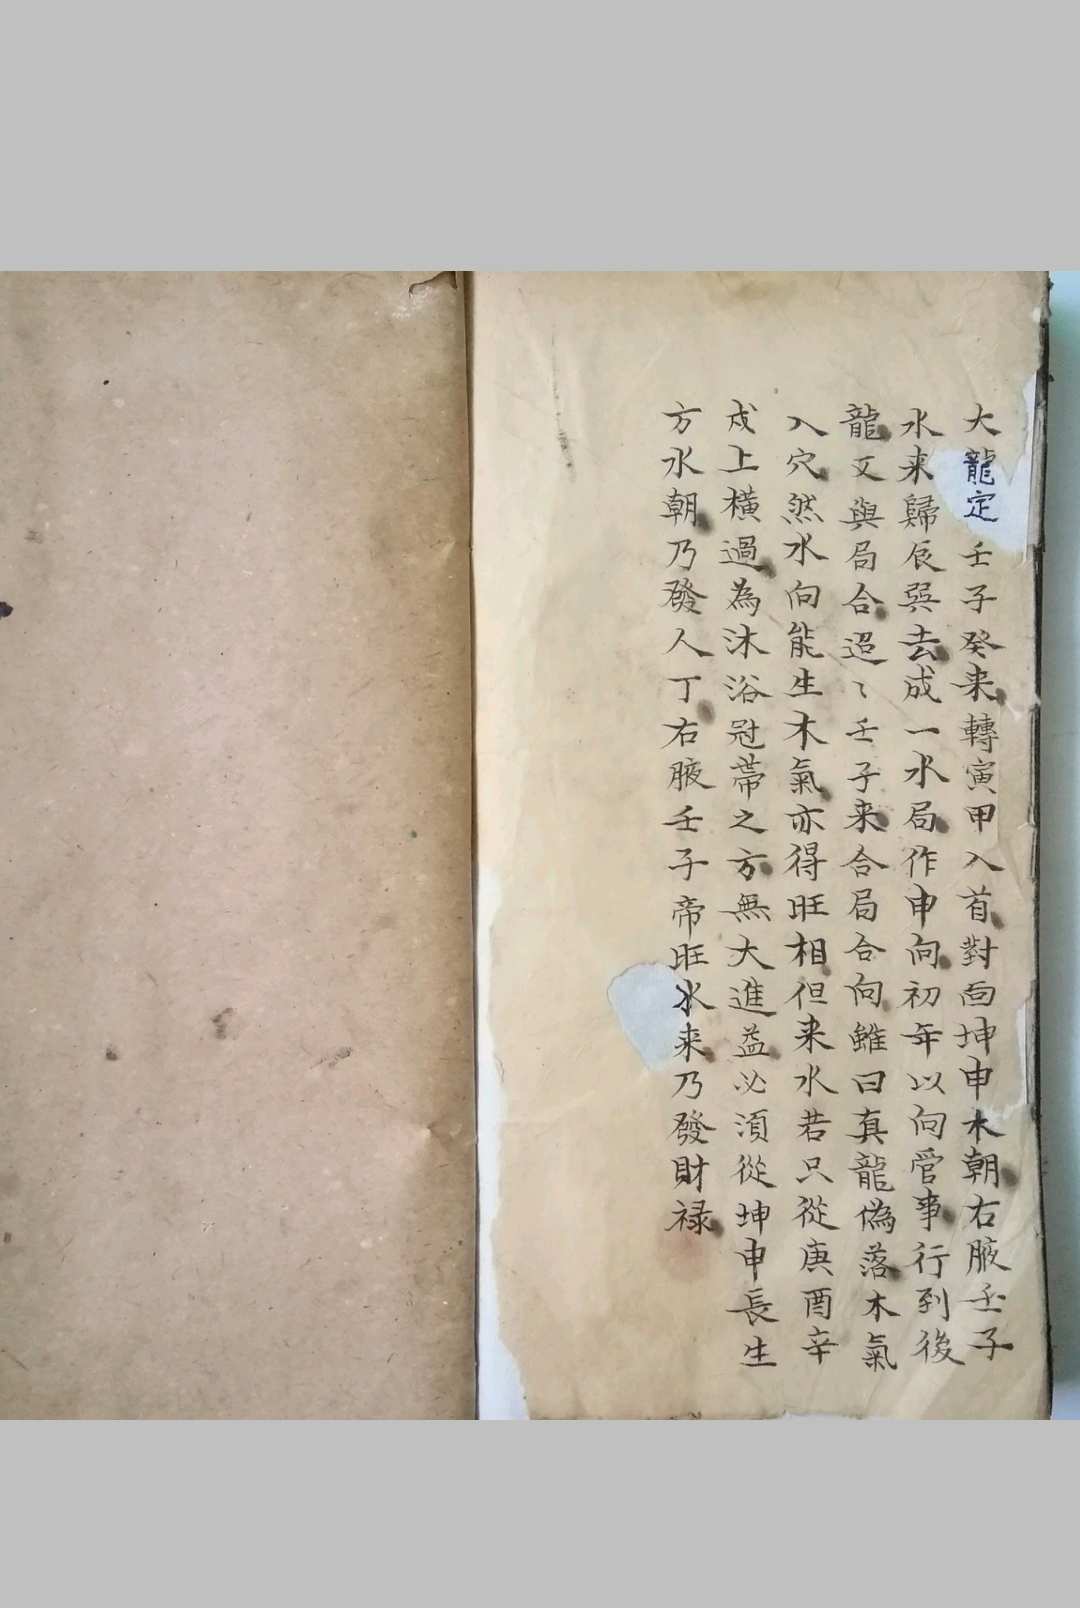 大龍定壬子癸来轉寅甲入首對面坤申水朝右腋壬子
水来歸辰巽去成一水局作申向初年以向管事行到後
龍又與局合迢〻壬子来合局合向雖曰真龍偽落木氣
入穴然水向能生木氣亦得旺相但来水若只從庚酉辛
戌上橫過為沐浴冠帶之方無大進益必須從坤申長生
方水朝乃發人丁右腋壬子帝旺水来乃發財禄